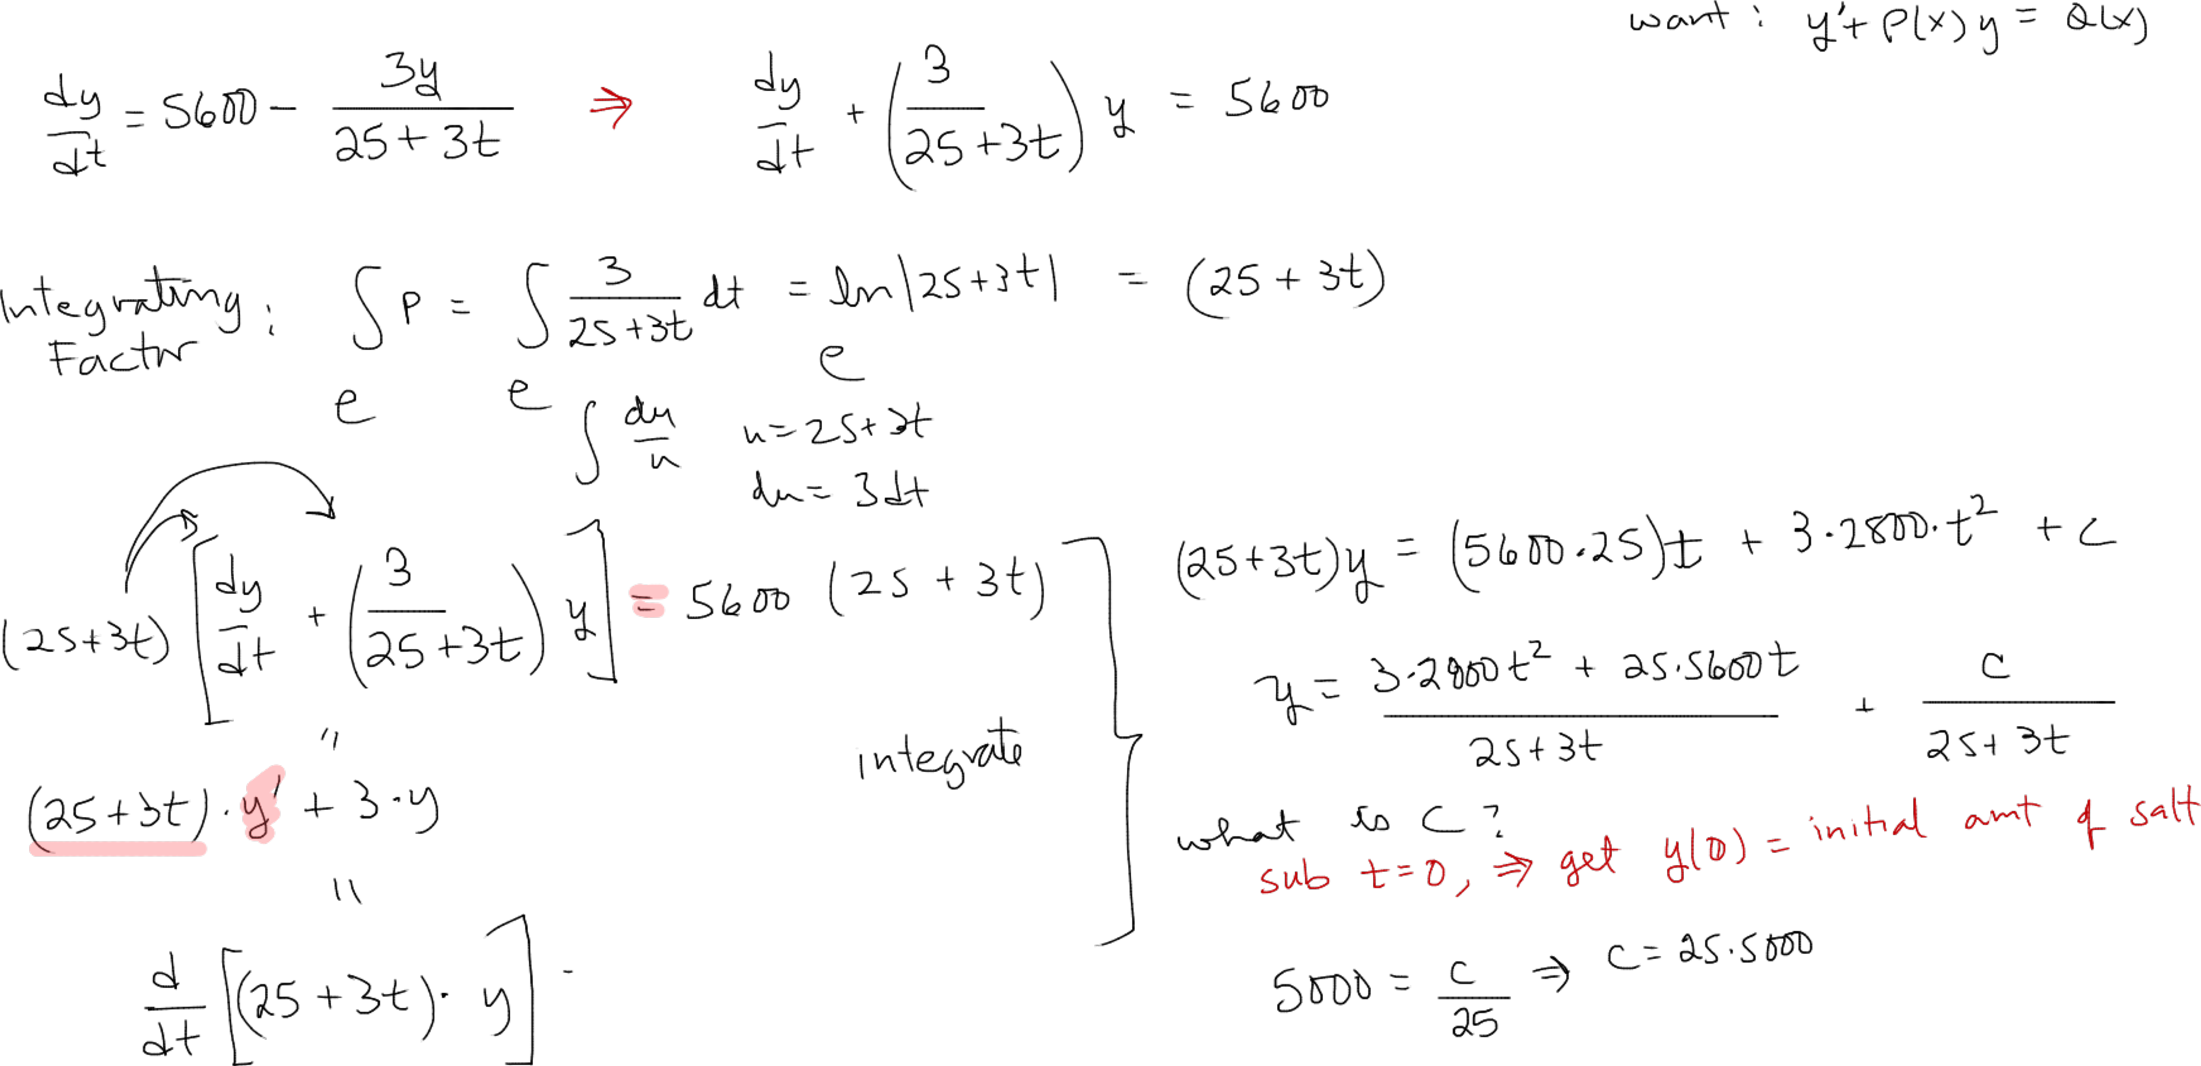 want : y' + P(x) y = Q(x)
dy/dt = 5600 - 3y/(25 + 3t) ⇒ dy/dt + (3/(25 + 3t)) y = 5600
Integrating Factor : e^{∫P} = e^{∫ 3/(25 + 3t) dt} = e^{ln|25+3t|} = (25 + 3t)
∫ du/u u = 25 + 3t
du = 3dt
(25+3t) [dy/dt + (3/(25 + 3t)) y] = 5600 (25 + 3t)
"
(25 + 3t) · y' + 3 · y
"
d/dt [(25 + 3t) · y] -
integrate
(25+3t)y = (5600·25)t + 3·2800·t² + C
y = (3·2800t² + 25·5600t)/(25+3t) + C/(25+3t)
what is C ?
sub t = 0, ⇒ get y(0) = initial amt of salt
5000 = C/25 ⇒ C = 25·5000